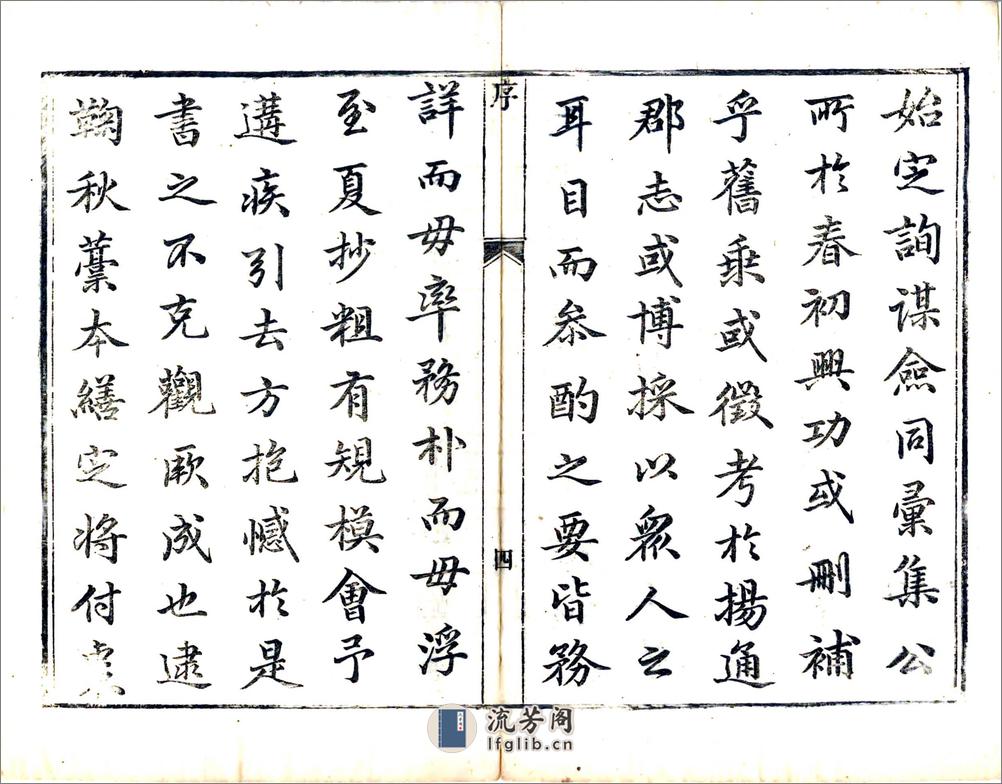 始定詢謀僉同彙集公
所於春初興功或刪補
乎舊乘或徵考於揚通
郡志或博採以眾人之
耳目而叅酌之要皆務
序
四
詳而毋率務朴而毋浮
至夏抄粗有規模會予
遘疾引去方抱憾於是
書之不克觀厥成也逮
鞠秋藁本繕定將付
流芳阁
lfglib.cn